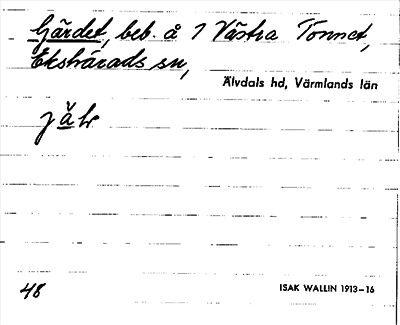 Gärdet, beb. å 1 Västra Tönnet,
Ekshärads sn,
Älvdals hd, Värmlands län
jäLe
48
ISAK WALLIN 1913–16